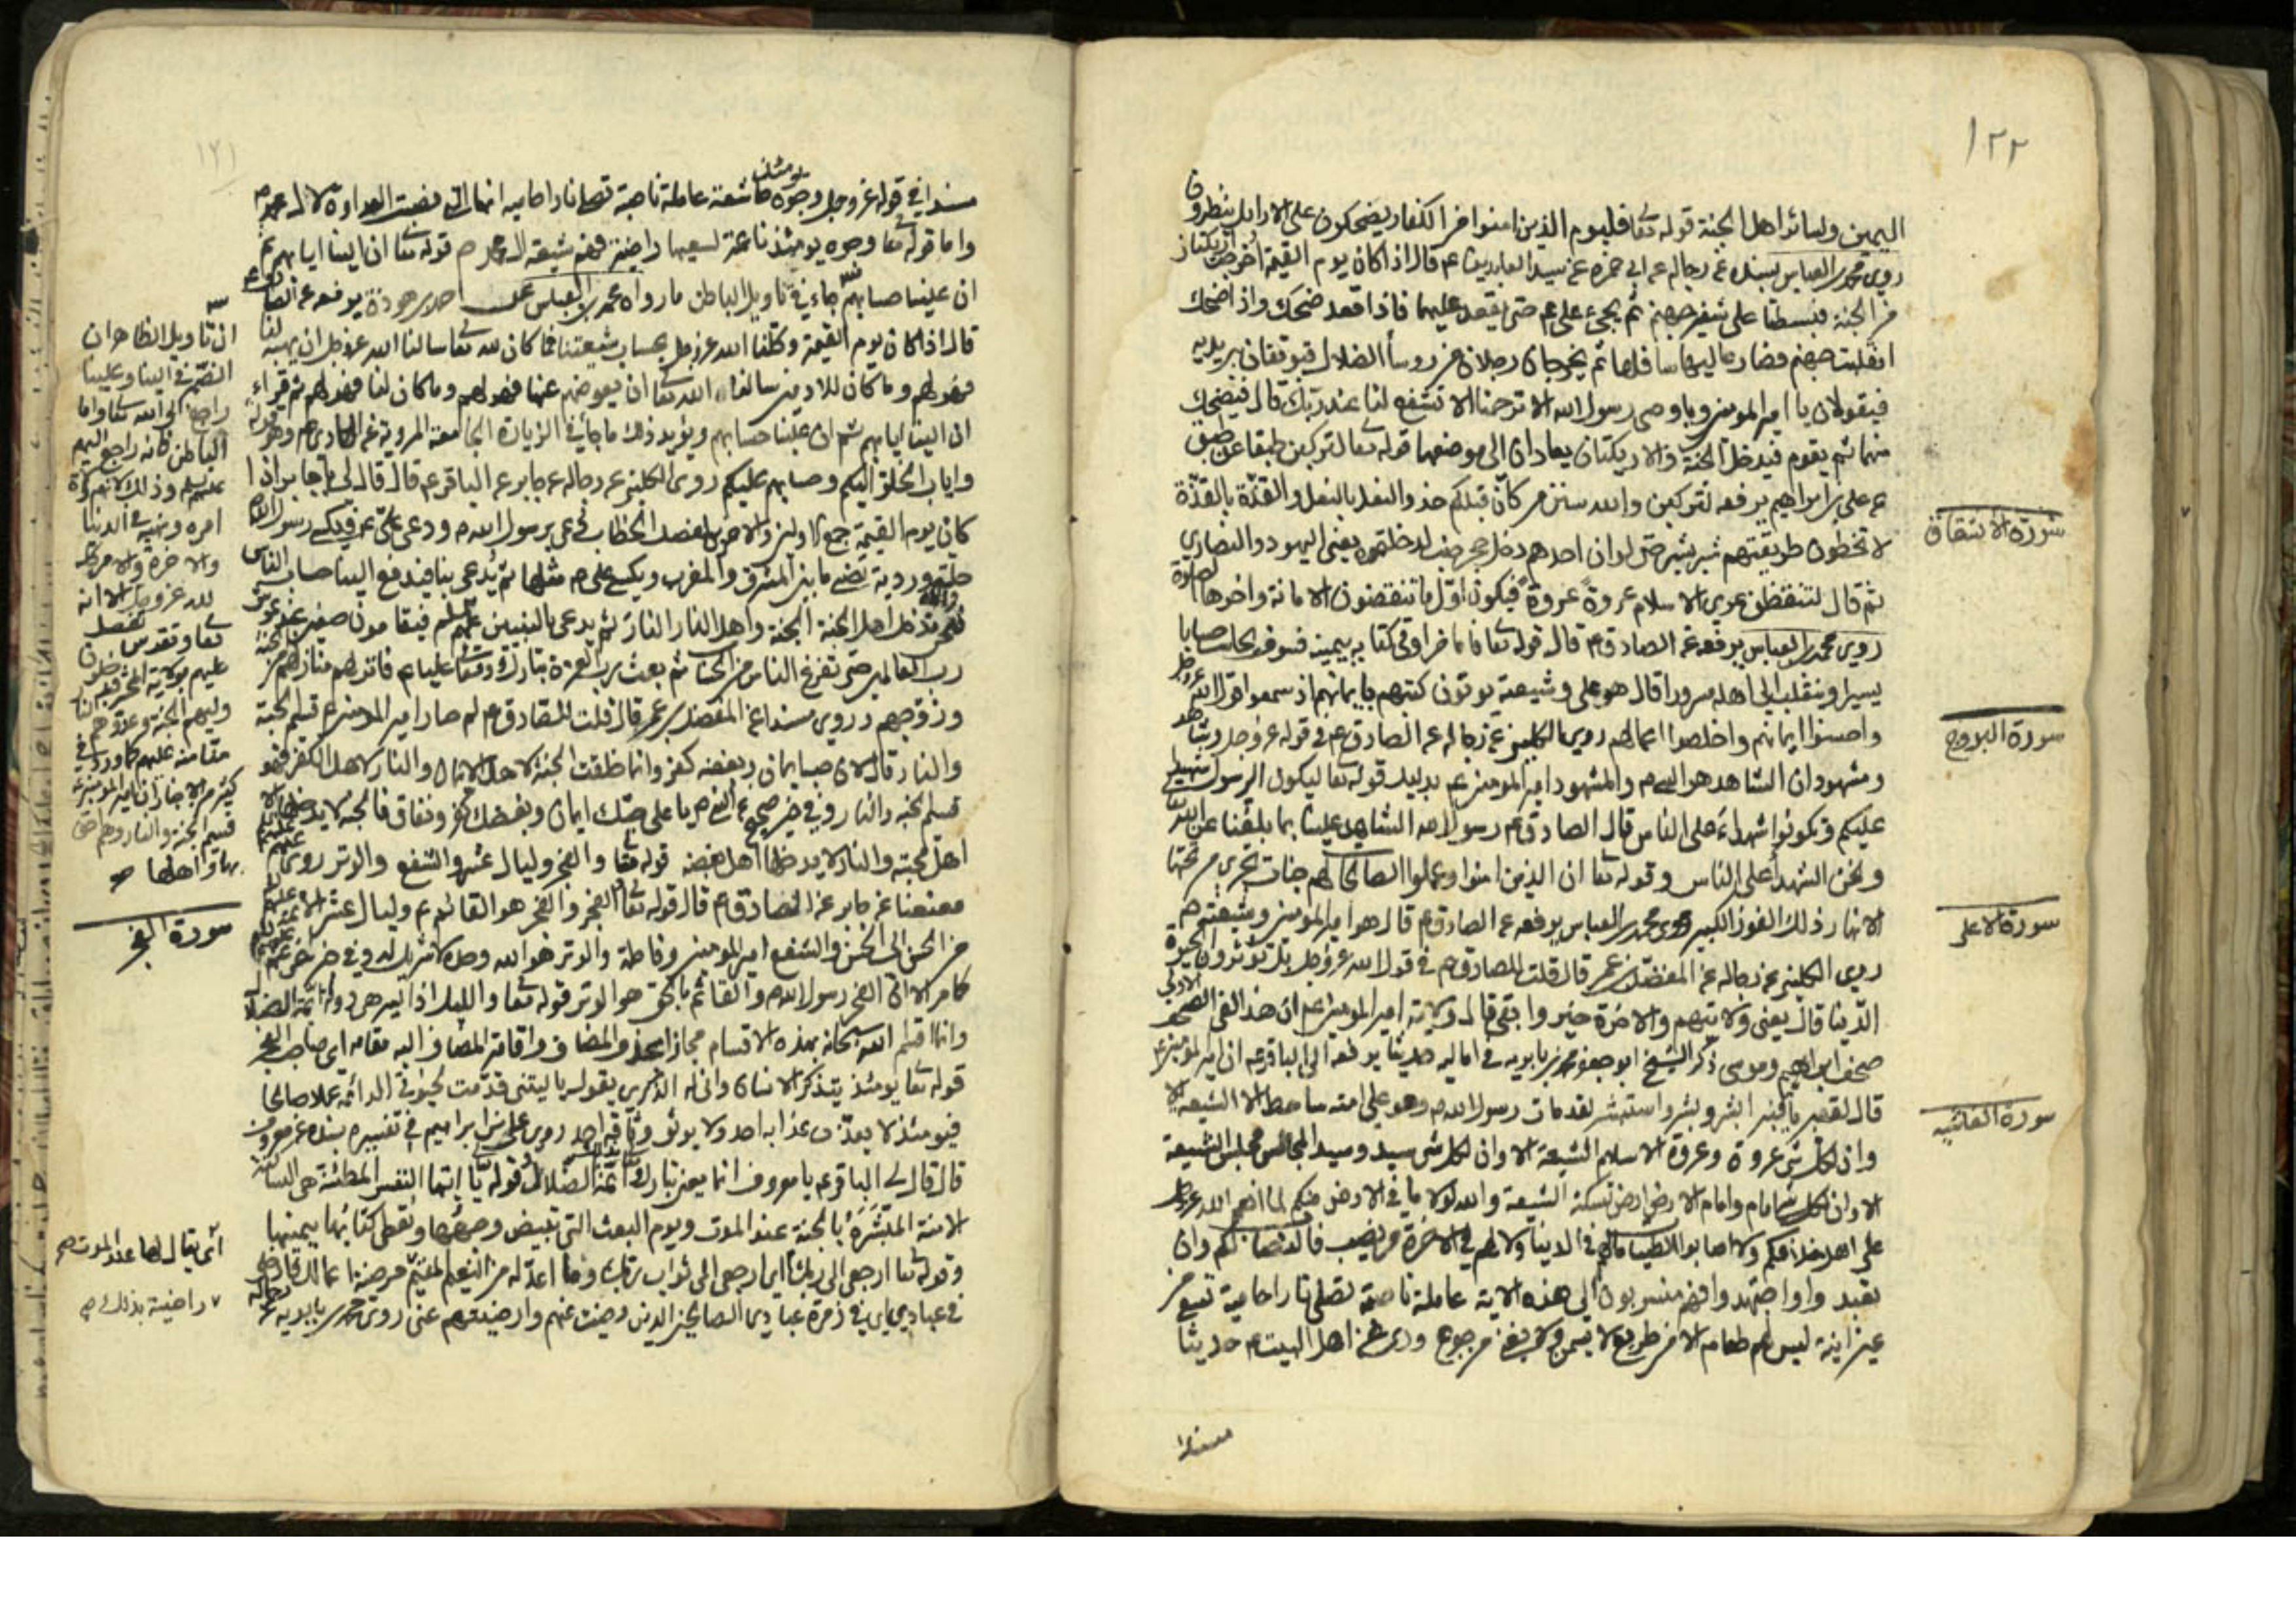 ١٢٢
اليمين ولسائر اهل الجنة قوله تعا فاليوم الذين امنوا من الكفار يضحكون على الارايك ينظرون
روى محمد بن العباس بسنده عن رجاله عن ابي حمزه عن سيد العابدين ع قال اذا كان يوم القيمة اخرج اريكتان
من الجنة فبسطتا على شفير جهنم ثم يجئ علي ع حتى يقعد عليهما فاذا قعد ضحك واذا ضحك
انقلبت جهنم فصار عاليها سافلها ثم يخرجان رجلان من روسأ الضلال فيوقفان بين يديه
فيقولان يا امير المومنين ويا وصي رسول الله الا ترحمنا الا تشفع لنا عند ربك قال فيضحك
منهما ثم يقوم فيدخل الجنة والاريكتان يعادان الى موضعهما قوله تعالى لتركبن طبقا عن طبق
عن علي بن ابراهيم يرفعه لتركبن والله سنن من كان قبلكم حذو النعل بالنعل والقذة بالقذة
سورة الانشقاق
لا تخطون طريقتهم شبر بشبر حتى لو ان احدهم دخل جحر ضب لدخلتموه يعني اليهود والنصارى
ثم قال لتنقضن عرى الاسلام عروة عروة فيكون اول ما تنقضون الامانة واخرها الصلوة
روى محمد بن العباس يرفعه عن الصادق ع قال قوله تعا فاما من اوتي كتابه بيمينه فسوف يحاسب حسابا
يسيرا وينقلب الى اهله مسرورا قال هو علي وشيعته يوتون كتبهم بايمانهم اذ سمعوا قول الله عز وجل
واحسنوا ايمانهم واخلصوا اعمالهم روى الكليني عن رجاله عن الصادق ع في قوله عز وجل وشاهد
سورة البروج
ومشهود ان الشاهد هو النبي ص والمشهود امير المومنين ع بدليل قوله تعا ليكون الرسول شهيدا
عليكم وتكونوا شهداء على الناس قال الصادق ع رسول الله الشاهد علينا بما بلغنا عن الله تعا
ونحن الشهدا على الناس وقوله تعا ان الذين امنوا وعملوا الصالحات لهم جنات تجرى من تحتها
الانهار ذلك الفوز الكبير روى محمد بن العباس يرفعه عن الصادق ع قال هو امير المومنين وشيعته
سورة الاعلى
روى الكليني عن رجاله عن المفضل بن عمر قال قلت للصادق ع في قول الله عز وجل بل تؤثرون الحيوة
الدنيا قال يعني ولايتهم والاخرة خير وابقى قال ولاية امير المومنين ع ان هذا لفي الصحف الاولى
صحف ابراهيم وموسى ذكر الشيخ ابو جعفر محمد بن بابويه في اماليه حديثا يرفعه الى الباقر ع ان امير المومنين ع
قال لقنبر يا قنبر ابشر وبشر واستبشر لقد مات رسول الله ص وهو على امته ساخط الا الشيعة الا
سورة الغاشيه
وان لكل شئ عروة وعروة الاسلام الشيعة الا وان لكل شئ سيد وسيد المجالس مجلس الشيعة
الا وان لكل شئ امام وامام الارض ارض تسكنه الشيعة والله لولا ما في الارض منكم لما انعم الله عز وجل
على اهل خلافكم ولا اصابوا الطيبات مالهم في الدنيا ولا لهم في الاخرة من نصيب
تعبد واو اجتهد وافهم منسوبون الى هذه الاية عاملة ناصبة تصلى نارا حامية تسقى من
عين انية ليس لهم طعام الا من ضريع لا يسمن ولا يغني من جوع وروى عن اهل البيت ع حديثا
مسندا
١٢١
مسندا في قوله عز وجل وجوه يومئذ خاشعة عاملة ناصبة تصلى نارا حاميه انها التي نصبت العداوة لال محمد ص
واما قوله تعا وجوه يومئذ ناعمة لسعيها راضية فهم شيعة ال محمد ص قوله تعا ان الينا ايابهم ثم
ان علينا حسابهم جاء في تاويل الباطن ما رواه محمد بن العباس عن احمد بن هوذة يرفعه عن الصادق ع
قال اذا كان يوم القيمة وكلنا الله عز وجل بحساب شيعتنا فما كان لله تعا سالنا الله عز وجل ان يهبه لنا
فهو لهم وما كان للادميين سالنا الله تعا ان يعوضهم عنها فهو لهم وما كان لنا فهو لهم ثم قراء
ان الينا ايابهم ثم ان علينا حسابهم ويؤيد ذلك ما جاء في الزيارة الجامعة المروية عن الهادى ع وهو قوله
واياب الخلق اليكم وحسابهم عليكم روى الكليني عن رجاله عن جابر عن الباقر ع قال قال لي يا جابر اذا
كان يوم القيمة جمع الاولين والاخرين لفصل الخطاب دعي برسول الله ص ودعي علي ع فيكسى رسول الله
حلة وردية تضئ ما بين المشرق والمغرب ويكسى علي ص مثلها ثم يدعى بنا فيدفع الينا حساب الناس
فنحن والله ندخل اهل الجنة الجنة واهل النار النار ثم يدعى بالنبيين فيقامون صفين عند عرش
رب العالمين حتى نفرغ الناس من الحساب ثم بعث رب العزة تبارك وتعا عليا ع فانزلهم منازلهم من الجنة
وزوجهم وروى مسندا عن المفضل بن عمر قال قلت للصادق ع لم صار امير المومنين قسيم الجنة
والنار قال لان حبه ايمان وبغضه كفر وانما خلقت الجنة لاهل الايمان والنار لاهل الكفر فهو
قسيم الجنه والنار وفي خبر صحيح عن النبي ص يا علي حبك ايمان وبغضك كفر ونفاق فالجنه لا يدخلها الا
اهل محبته والنار لا يدخلها الا اهل بغضه قوله تعا والفجر وليال عشر والشفع والوتر روى
معنعنا عن جابر عن الصادق ع قال قوله تعا والفجر والفجر هو القائم ع وليال عشر الائمة عليهم السلام
من الحسن الى الحسن والشفع امير المومنين وفاطمة والوتر هو الله وحده لا شريك له وفي خبر اخر
كما مر الا ان الفجر رسول الله ص والقائم بالحق هو الوتر قوله تعا والليل اذا يسر هي دولة ائمة الضلال
وانما اقسم الله سبحانه بهذه الاقسام مجازا بحذف المضاف واقامة المضاف اليه مقامه اي صاحب الفجر
قوله تعا يومئذ يتذكر الانسان وانى له الذكرى يقول يا ليتني قدمت لحيوتي الدائمة عملا صالحا
فيومئذ لا يعذب عذابه احد ولا يوثق وثاقه احد روى علي بن ابراهيم في تفسيره بسنده عن معروف
قال قال لي الباقر ع يا معروف انما يعني تبارك ائمة الضلال قوله يا ايتها النفس المطمئنة هي الساكنة
الامنة المبشرة بالجنة عند الموت ويوم البعث التي تبيض وجهها وتعطى كتابها بيمينها
وقوله تعا ارجعي الى ربك اي ارجعي الى ثواب ربك وما اعد له من النعيم المقيم مرضية اعمالك فادخلي
في عبادي اي في زمرة عبادى الصالحين الذين رضيت عنهم وارضيتهم عني روى محمد بن بابويه عن رجاله
ان تاويل الظاهر ان
الضمير في الينا وعلينا
راجع الى الله تعا واما
الباطن فانه راجع اليهم
عليهم السلام وذلك لانهم ولاة
امره ونهيه في الدنيا
والاخرة والامر كله
لله عز وجل الا انه
سورة الفجر
اي يقال لها عند الموت صح
راضية بذلك صح